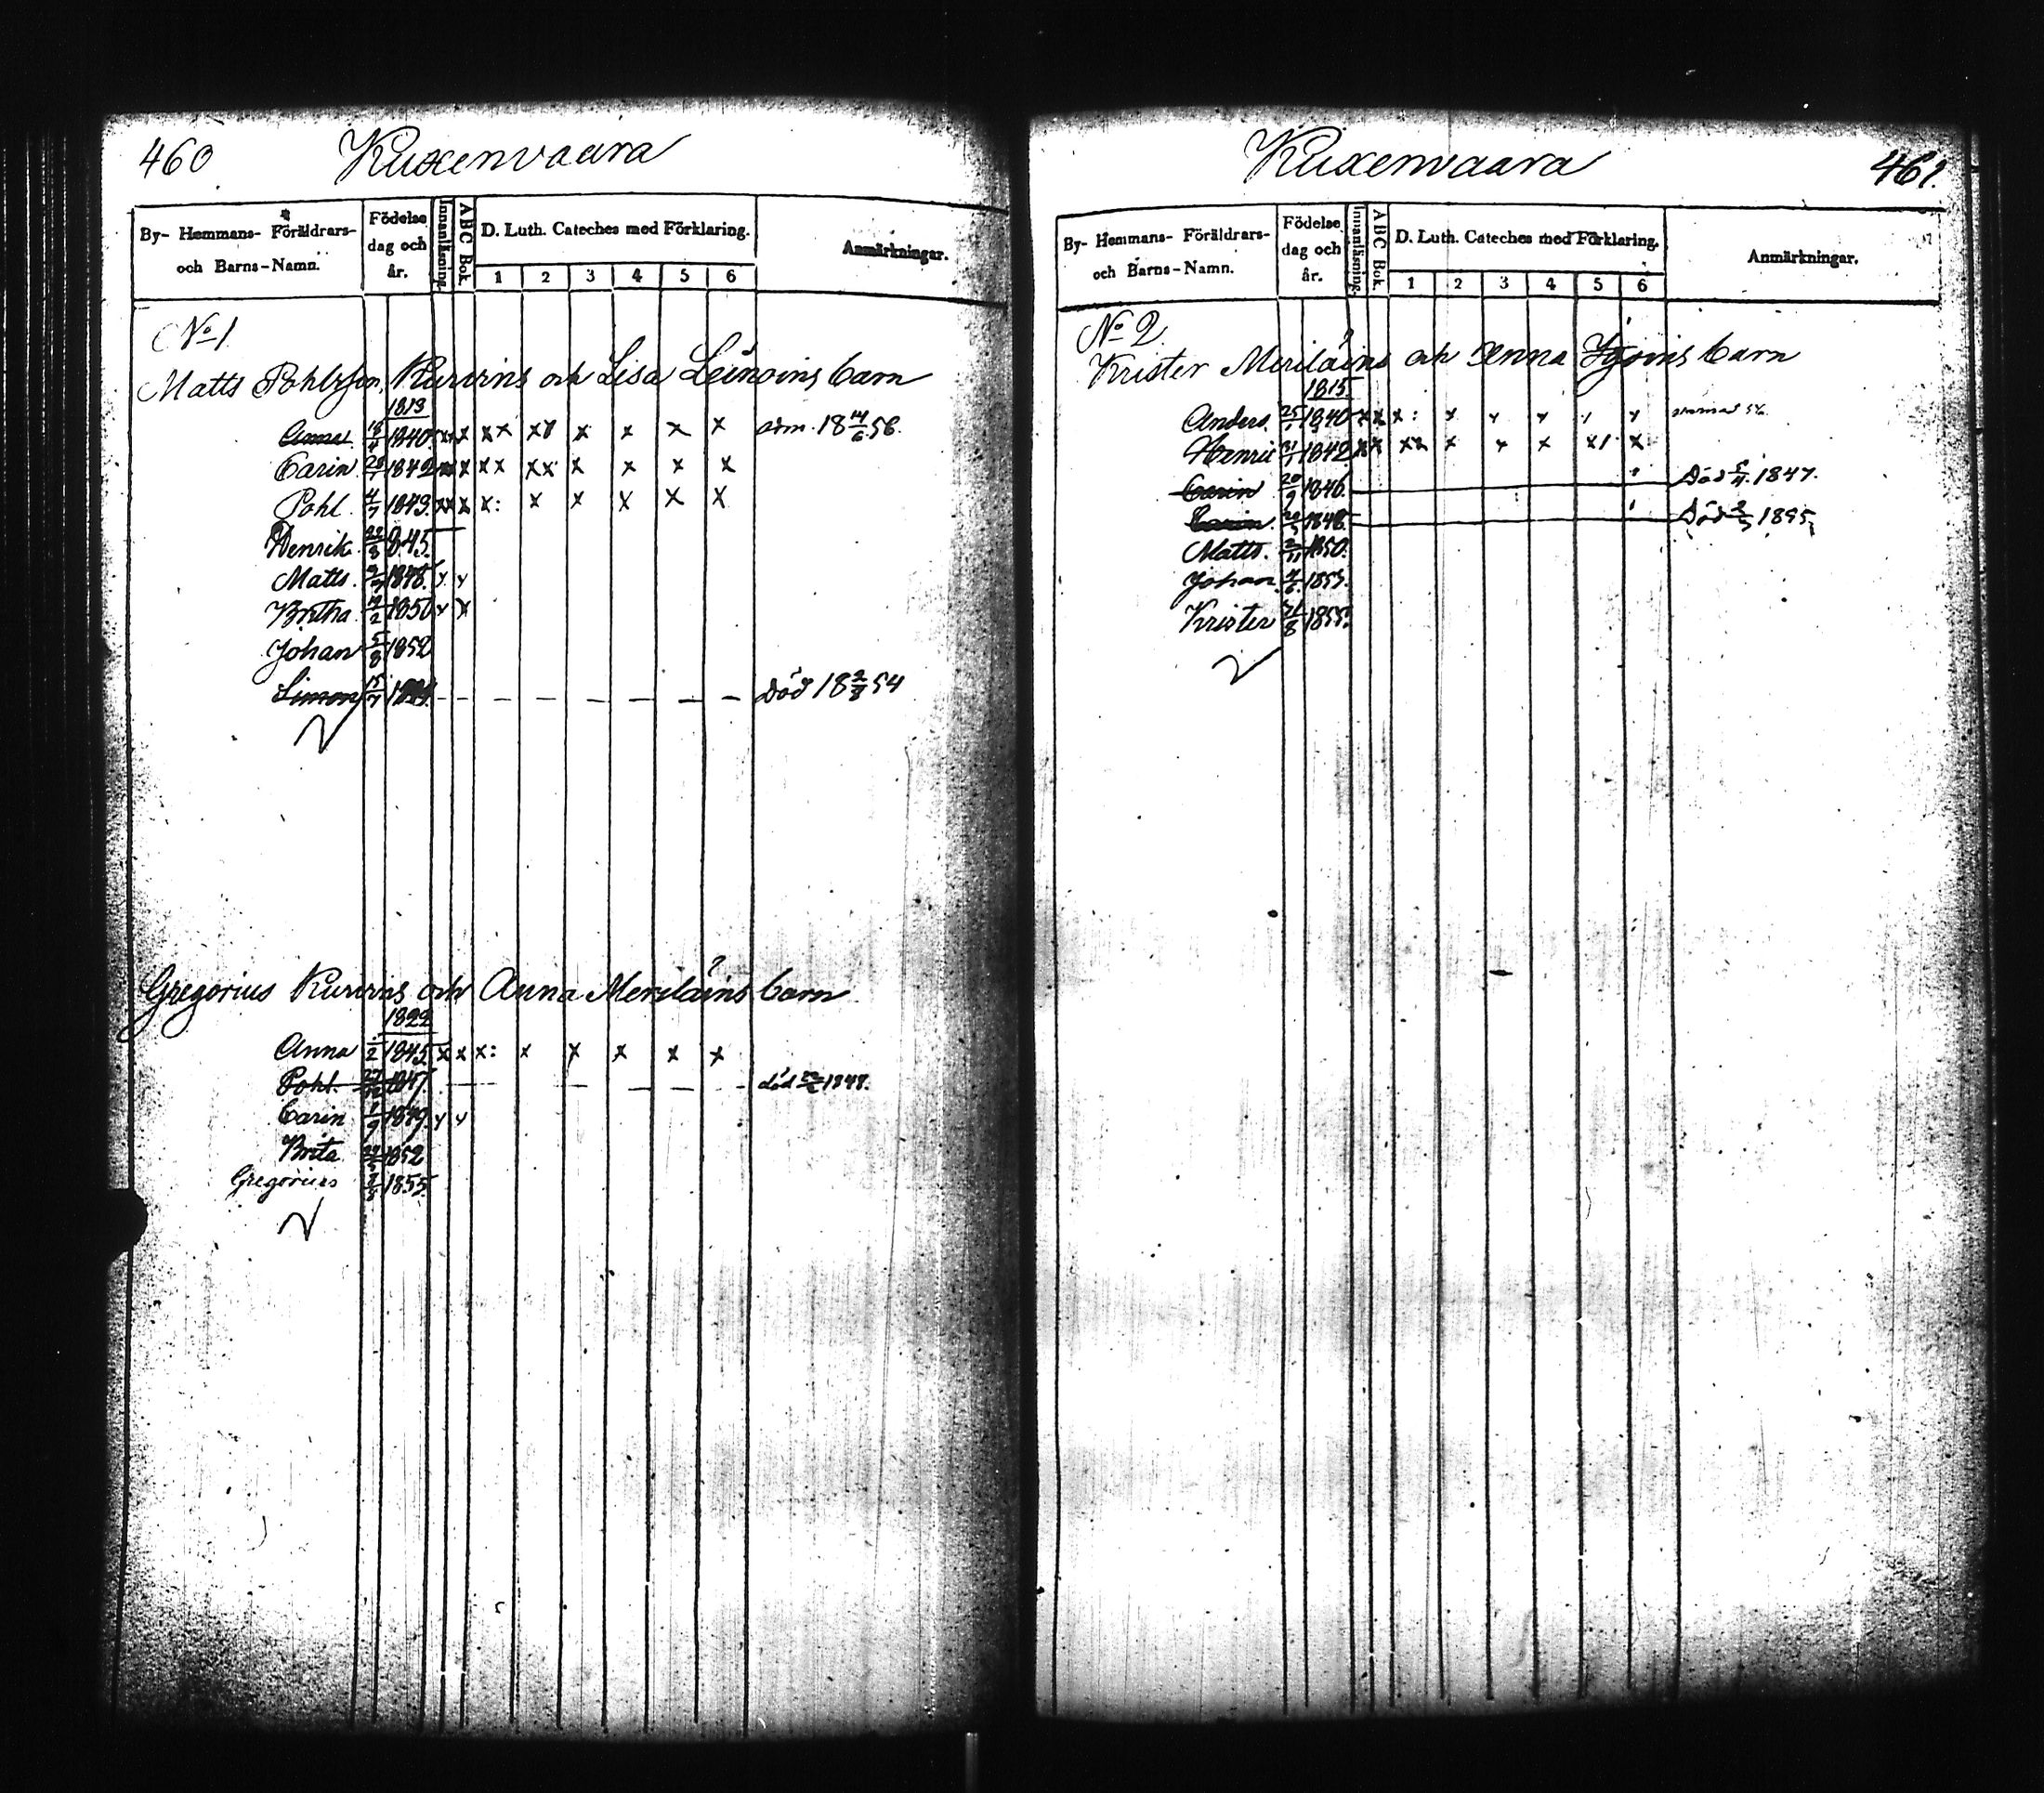 460 Kuxenvaara
By- Hemmans- Föräldrars- och Barns-Namn.
Födelse dag och år.
Innanläsning.
ABC Bok.
D. Luth. Cateches med Förklaring.
1 2 3 4 5 6
Anmärkningar.
No 1
Matts Pohlsson Kurvins och Lisa Leinoins barn
1813
Anna 18/4 1840 xx x xx x x x x x adm. 18 14/6 56.
Carin 1842 x xx xx x x x x
Pohl. 4/7 1843. xx x x: x x x x x
Henrik 22/8 845.
Matts. 1848. x x
Britha 1850 x x
Johan 5/8 1852
Simon 15/7 död 18 2/8 54
Gregorius Kurvins och Anna Meriläins barn
1822
Anna 1845 x x x: x x x x x
Pohl. 1847. död 1848.
Carin 1/9 1849 x x
Brita 1852
Gregorius 1855.
Kuxenvaara 461.
By- Hemmans- Föräldrars- och Barns-Namn.
Födelse dag och år.
Innanläsning.
ABC Bok.
D. Luth. Cateches med Förklaring.
1 2 3 4 5 6
Anmärkningar.
No 2
Krister Meriläins och Anna barn
1815.
Anders. 1840 x x x: x x x x x
Henric 1842 x x xx x x x x
Carin 20/9 1846. Död 1847.
Carin 1848. Död
Matts. 1850.
Johan
Krister 1855.